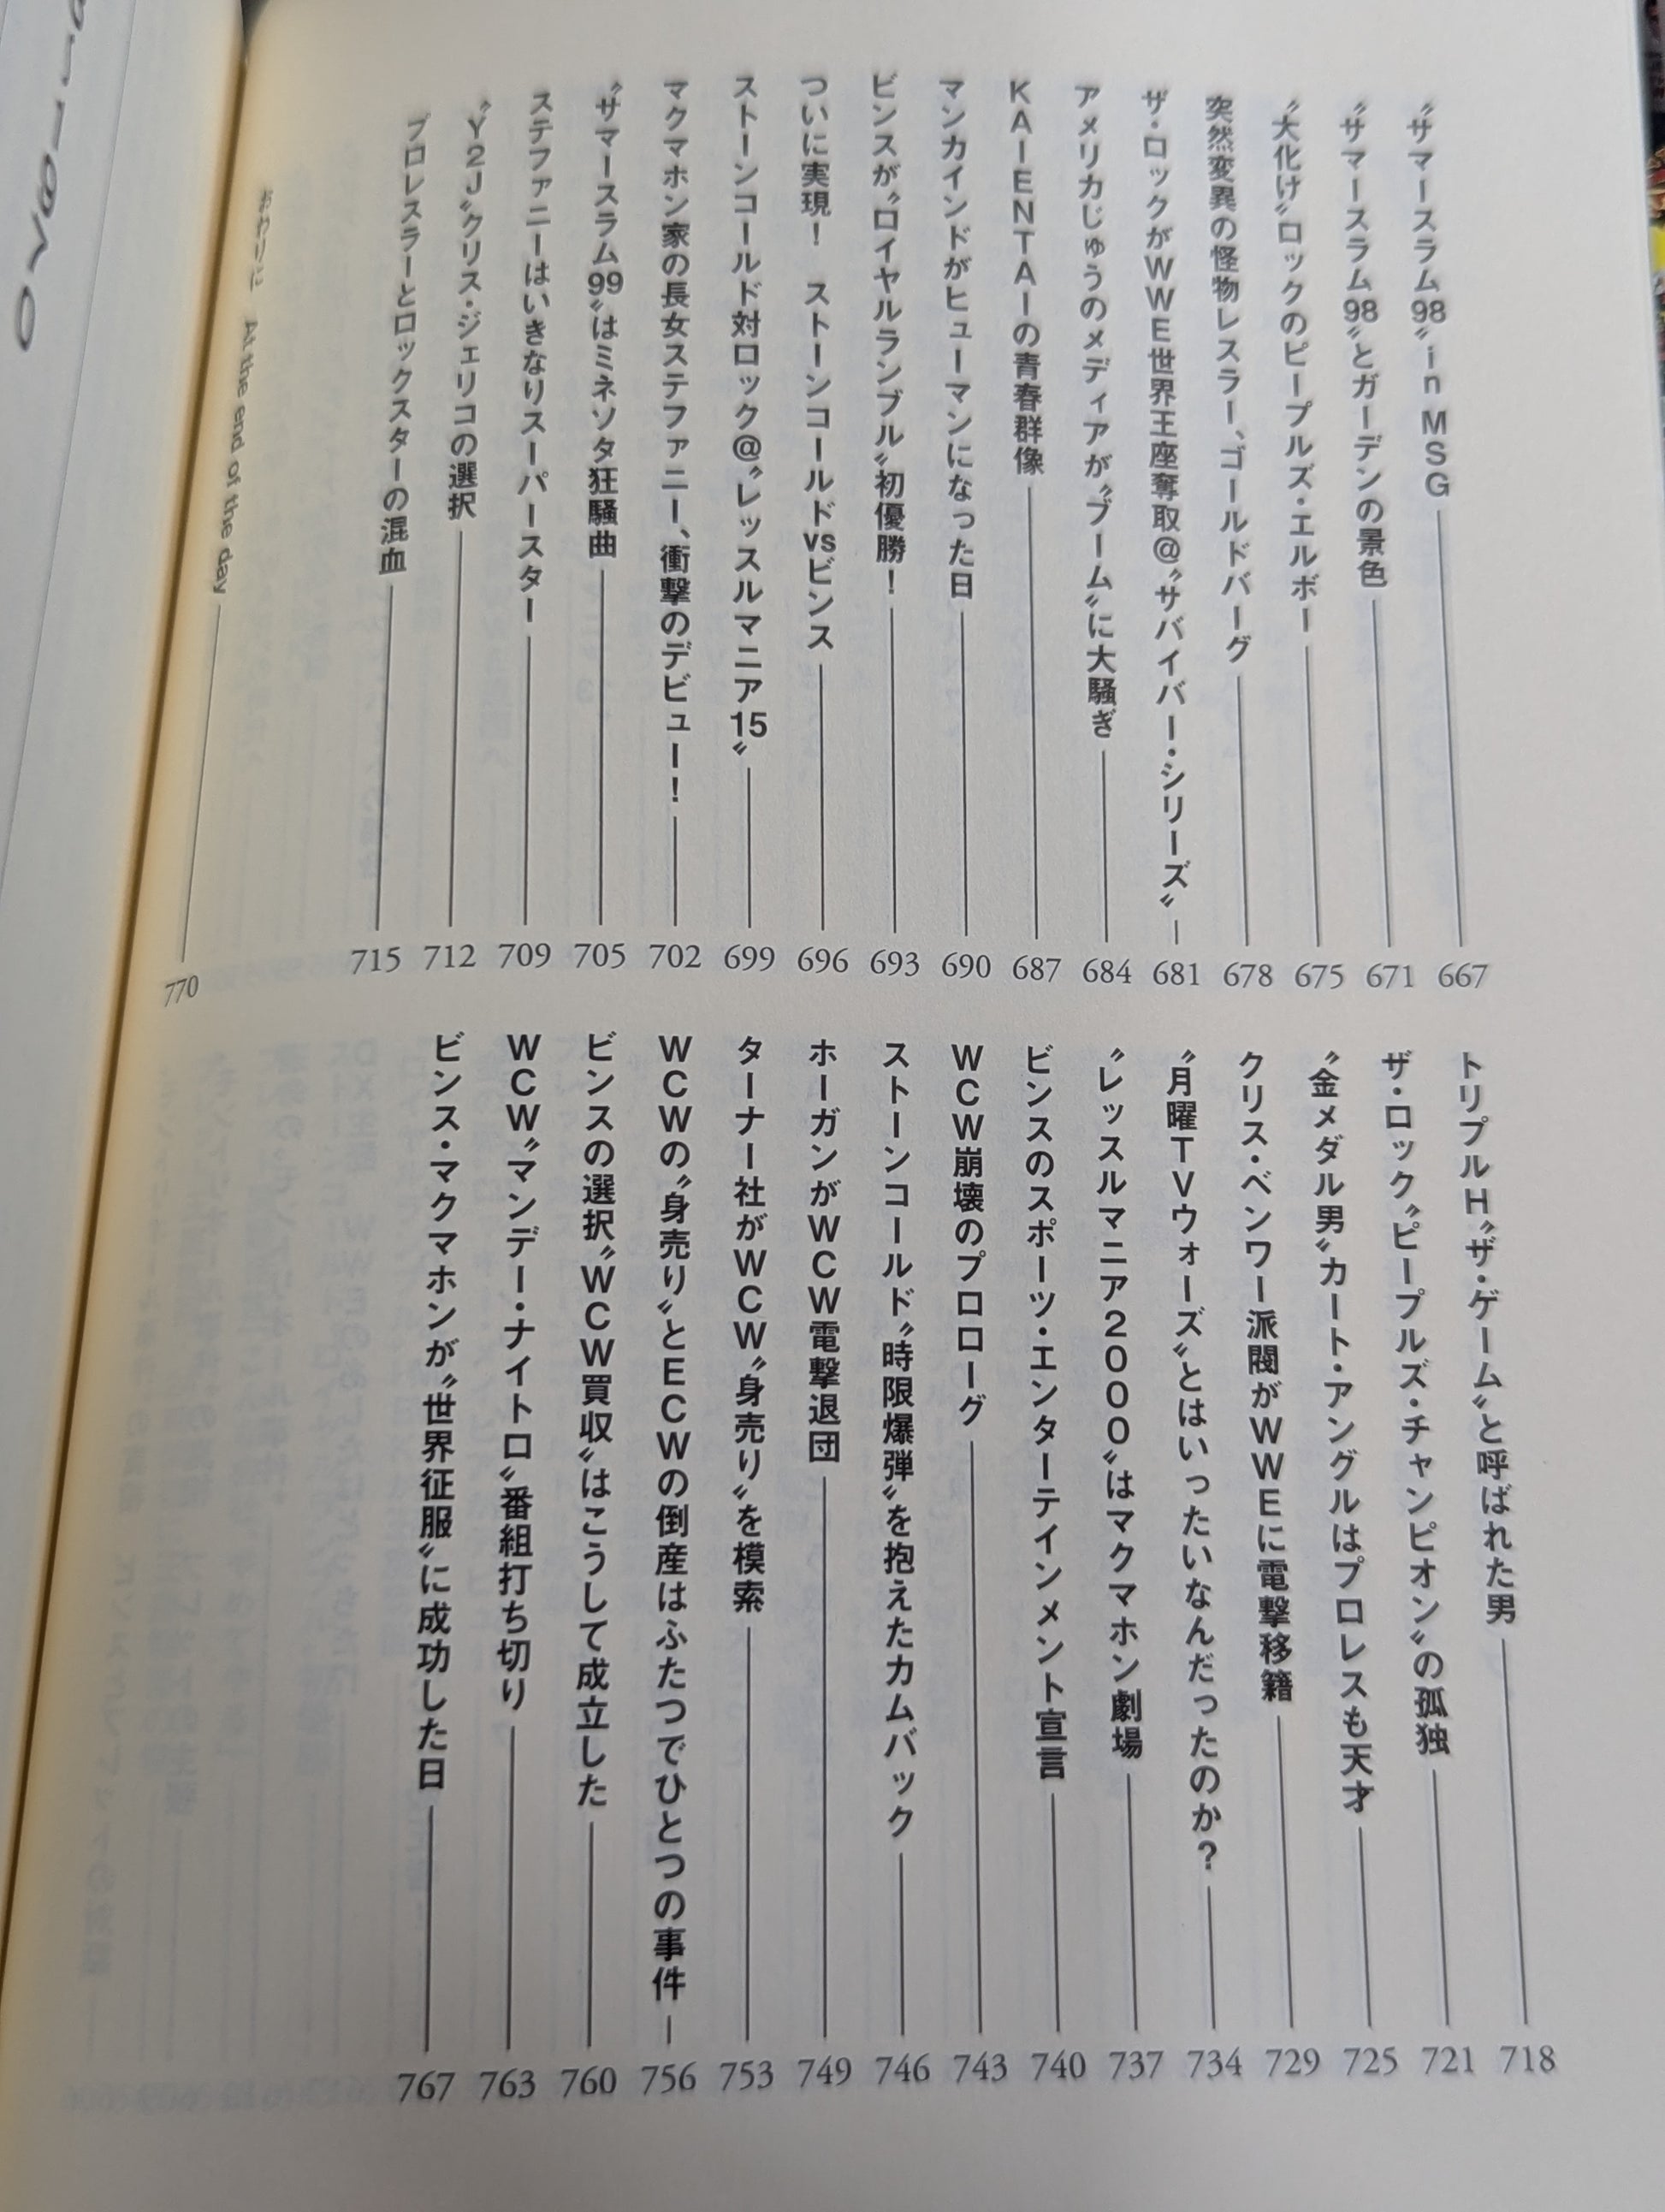 〝サマースラム98〟in MSG 667
〝サマースラム98〟とガーデンの景色 671
〝大化け〟ロックのピープルズ・エルボー 675
突然変異の怪物レスラー、ゴールドバーグ 678
ザ・ロックがWWE世界王座奪取@〝サバイバー・シリーズ〟 681
アメリカじゅうのメディアが〝ブーム〟に大騒ぎ 684
KAIENTAIの青春群像 687
マンカインドがヒューマンになった日 690
ビンスが〝ロイヤルランブル〟初優勝! 693
ついに実現! ストーンコールドvsビンス 696
ストーンコールド対ロック@〝レッスルマニア15〟 699
マクマホン家の長女ステファニー、衝撃のデビュー! 702
〝サマースラム99〟はミネソタ狂騒曲 705
ステファニーはいきなりスーパースター 709
〝Y2J〟クリス・ジェリコの選択 712
プロレスラーとロックスターの混血 715
おわりに At the end of the day 770
トリプルH〝ザ・ゲーム〟と呼ばれた男 718
ザ・ロック〝ピープルズ・チャンピオン〟の孤独 721
〝金メダル男〟カート・アングルはプロレスも天才 725
クリス・ベンワー派閥がWWEに電撃移籍 729
〝月曜TVウォーズ〟とはいったいなんだったのか? 734
〝レッスルマニア2000〟はマクマホン劇場 737
ビンスのスポーツ・エンターテインメント宣言 740
WCW崩壊のプロローグ 743
ストーンコールド〝時限爆弾〟を抱えたカムバック 746
ホーガンがWCW電撃退団 749
ターナー社がWCW〝身売り〟を模索 753
WCWの〝身売り〟とECWの倒産はふたつでひとつの事件 756
ビンスの選択〝WCW買収〟はこうして成立した 760
WCW〝マンデー・ナイトロ〟番組打ち切り 763
ビンス・マクマホンが〝世界征服〟に成功した日 767